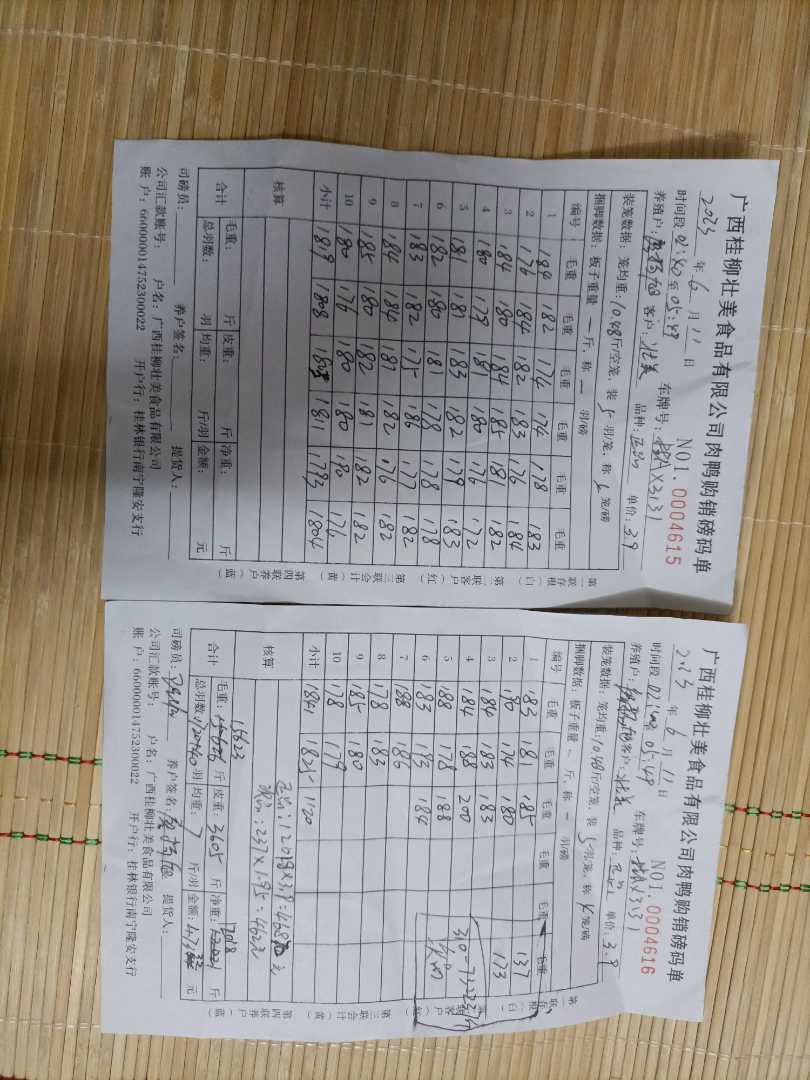 广西桂柳壮美食品有限公司肉鸭购销磅码单
NO1.0004615
2025年6月11日
时间段 至05:49
养殖户: 客户:壮美 车牌号: 品种:正品 单价:3.9
装笼数据:笼均重:10.48斤/空笼,装5羽/笼,称 笼/磅
捆脚数据:板子重量一斤,称一羽/磅
编号 毛重 毛重 毛重 毛重 毛重 毛重
1 184 182 174 174 178 183
2 176 184 182 183 176 184
3 184 180 184 185 181 182
4 180 179 181 180 176 172
5 181 181 183 182 179 183
6 182 180 181 178 178 178
7 183 182 175 186 177 182
8 184 184 181 182 176 182
9 185 180 182 181 182 182
10 180 176 180 180 180 176
小计 1819 1808 1803 1811 1783 1804
核算
合计 毛重: 斤 皮重: 斤 净重: 斤
总羽数: 羽 均重: 斤/羽 金额: 元
司磅员: 养户签名: 提货人:
公司汇款账号: 户名:广西桂柳壮美食品有限公司
账户:660000014752300022 开户行:桂林银行南宁隆安支行
第一联存根(白) 第二联客户(红) 第三联会计(黄) 第四联养户(蓝)
广西桂柳壮美食品有限公司肉鸭购销磅码单
NO1.0004616
2025年6月11日
时间段 05:49
养殖户: 客户:壮美 车牌号: 品种:正品 单价:3.9
装笼数据:笼均重:10.48斤/空笼,装5羽/笼,称 笼/磅
捆脚数据:板子重量一斤,称一羽/磅
编号 毛重 毛重 毛重 毛重 毛重 毛重
1 183 181 185 137
2 180 174 180 173
3 184 183 183
4 184 188 200
5 188 178 188
6 183 183 184
7 188 186
8 178 183
9 185 180
10 178 179
小计 1841 1825 1120
核算
正品:12018×3.9=46870元
次品:237×1.95=462元
合计 毛重:15623斤 皮重:3605斤 净重:12018斤
总羽数: 羽 均重:7斤/羽 金额:47332元
司磅员: 养户签名: 提货人:
公司汇款账号: 户名:广西桂柳壮美食品有限公司
账户:660000014752300022 开户行:桂林银行南宁隆安支行
第一联存根(白) 第二联客户(红) 第三联会计(黄) 第四联养户(蓝)